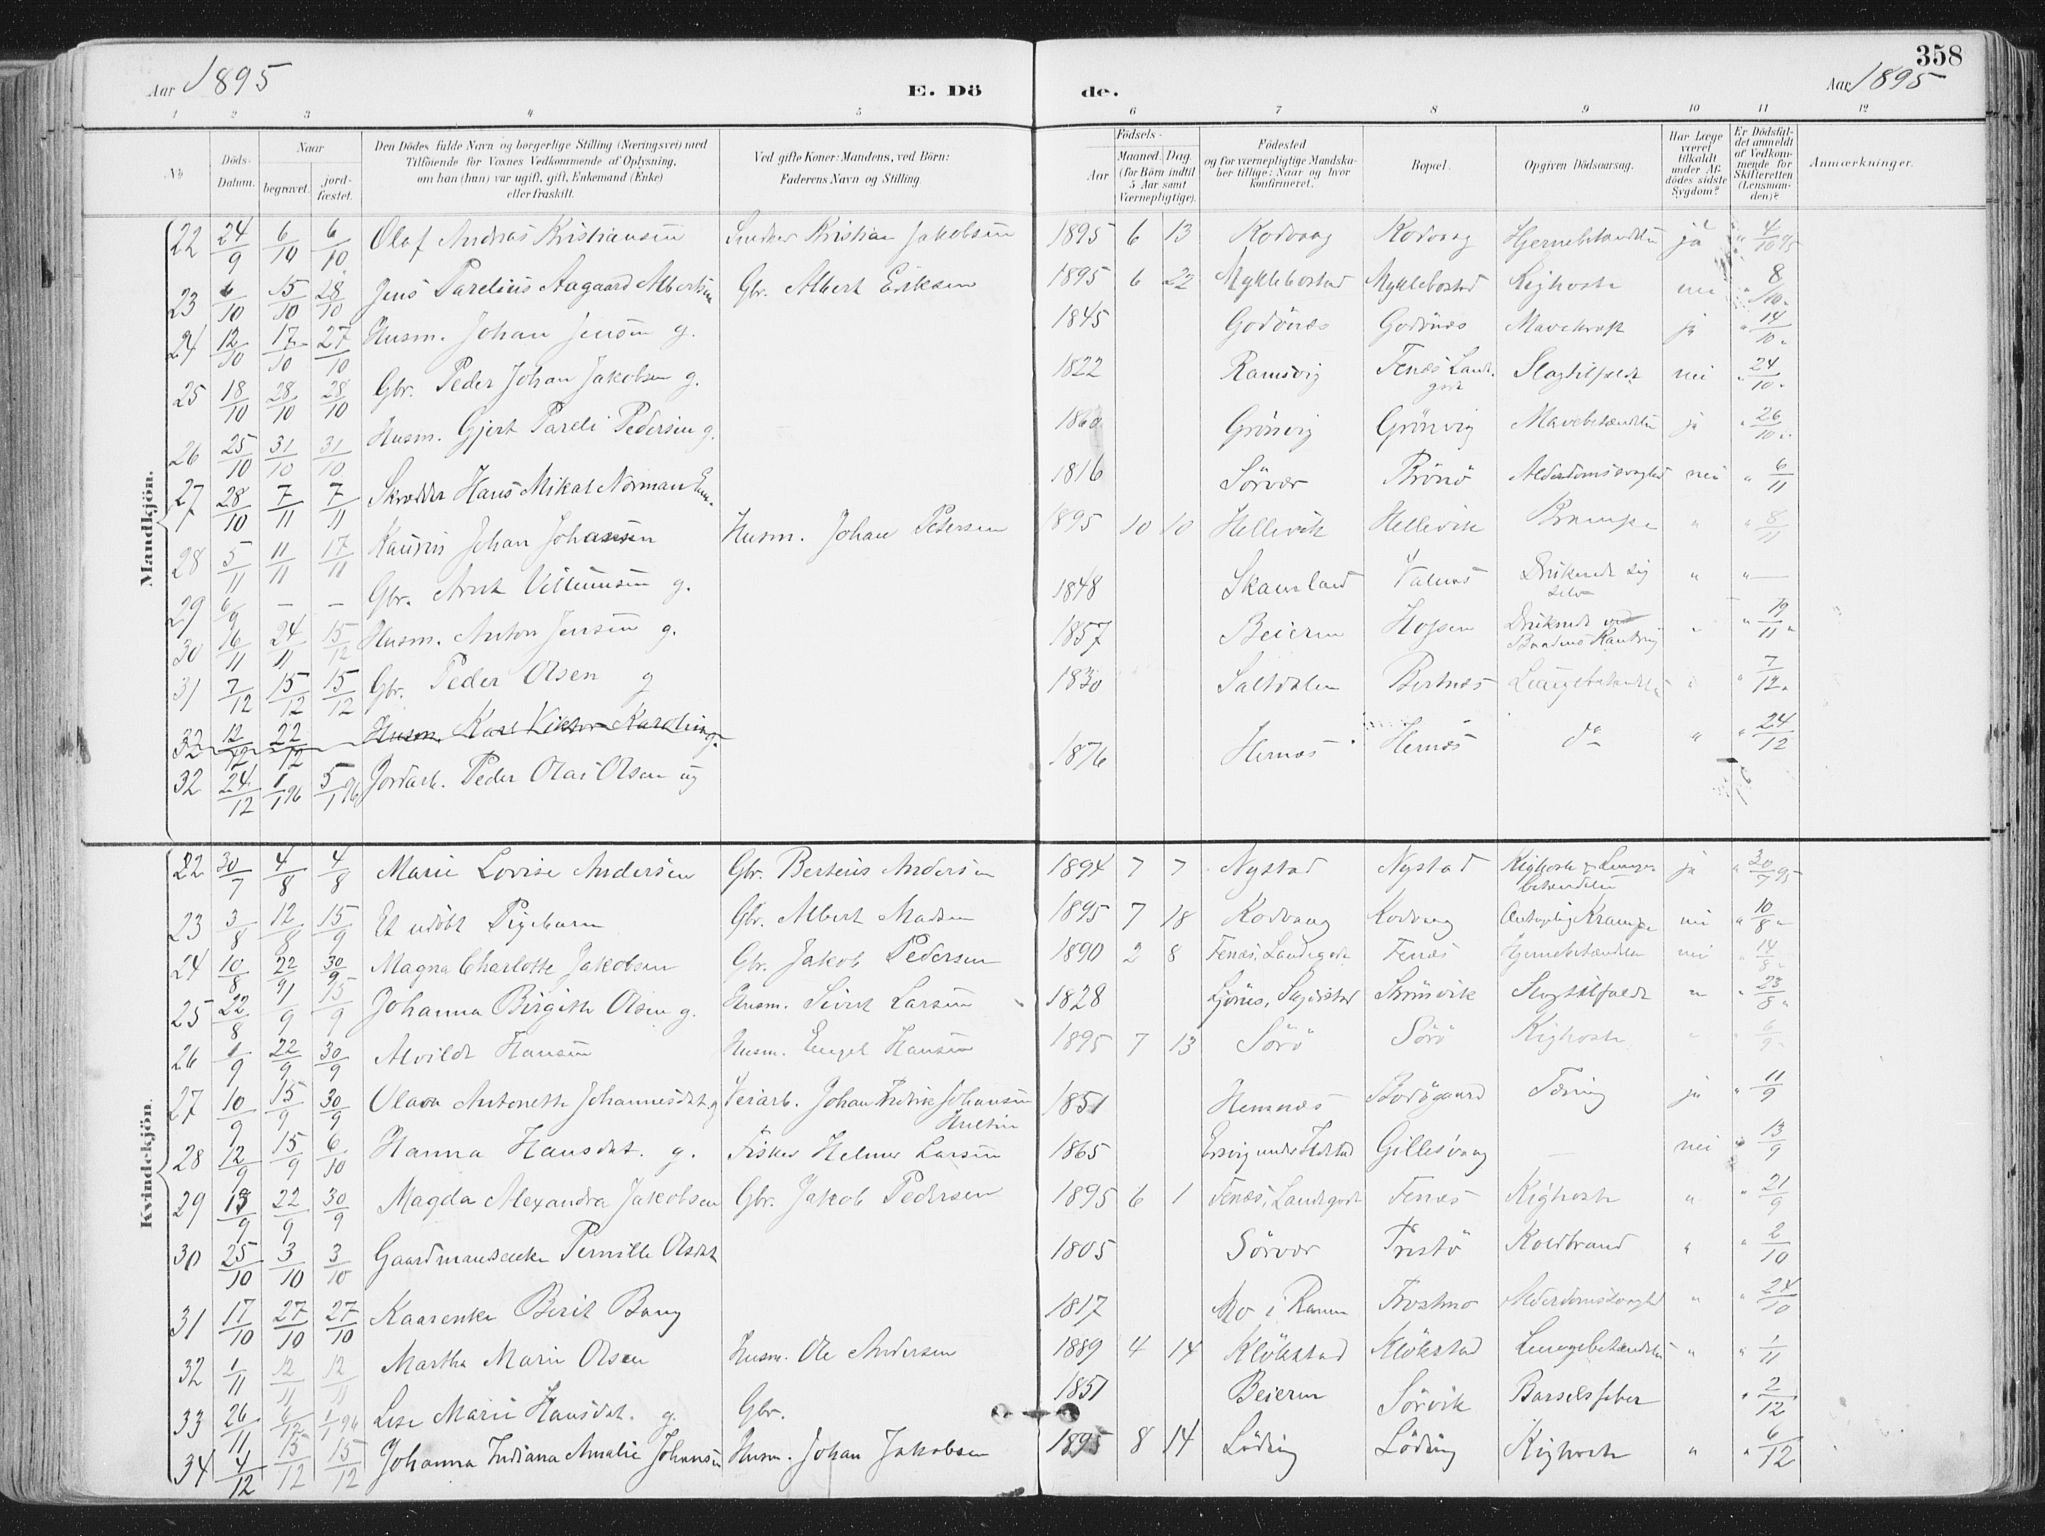 358
Aar 1895
E. Dö
de.
Aar 1895
1 2 3 4 5 6 7 8 9 10 11 12
No
Döds-Datum.
Naar
begravet.
jord-fæstet.
Den Dödes fulde Navn og borgerlige Stilling (Næringsvei) med
Tilföiende for Voxnes Vedkommende af Oplysning,
om han (hun) var ugift, gift, Enkemand (Enke)
eller fraskilt.
Ved gifte Koner: Mandens, ved Börn:
Faderens Navn og Stilling.
Födsels-
Aar
Maaned. Dag.
(for Börn indtil
5 Aar samt
Værnepligtige).
Födested
og for værnepligtige Mandska-
ber tillige: Naar og hvor
konfirmeret.
Bopæl.
Opgiven Dödsaarsag.
Har Læge
været
tilkaldt
under Af-
dödes sidste
Sygdom?
Er Dödsfal-
det anmeldt
af Vedkom-
mende for
Skifteretten
(Lensman-
den)?
Anmærkninger.
Mandkjön.
22 24/9 6/10 6/10 Olaf Andreas Kristiansen Snedker Kristian Jakobsen 1895 6 13 Kodvaag Kodvaag Hjernebetændelse ja " 4/10 95
23 6/10 15/10 28/10 Jens Parelius Aagaard Albertsen Gbr. Albert Eriksen 1895 6 22 Myklebostad Myklebostad Kighoste nei " 8/10 "
24 12/10 17/10 27/10 Husm. Johan Jensen g. 1845 Godönes Godönes Mavekræft ja " 14/10 "
25 18/10 28/10 28/10 Gbr. Peder Johan Jakobsen g. 1822 Ramsvig Fenes Landegode Slagtilfælde nei " 24/10 "
26 25/10 31/10 31/10 Husm. Gjert Pareli Pedersen g. 1860 Grönvig Grönvig Mavebetændelse ja " 26/10 "
27 28/10 7/11 7/11 Skrædder Hans Mikal Norman Enkem. 1816 Sörvær Brönö Alderdomssvaghed nei " 6/11
28 5/11 11/11 17/11 Kaurin Johan Johansen Husm. Johan Petersen 1895 10 10 Hellevik Hellevik Krampe " " 8/11
29 6/9 — — Gbr. Arnt Villumsen g. 1848 Skamland Valnes Druknede sig selv " " —
30 16/11 24/11 15/12 Husm. Anton Jensen g. 1857 Beieren Hopen Druknede ved Baadens Kantring " " 19/11 "
31 7/12 15/12 15/12 Gbr. Peder Olsen g 1830 Saltdalen Bertnes Lungebetændelse " " 7/12 "
32 12/12 22/12 Husm. Karl Viktor Karolius g.
32 24/12 1/1 96 5/1 96 Jordarb. Peder Olai Olsen ug 1876 Hernes Hernes do " " 24/12
Kvindekjön.
22 30/7 4/8 4/8 Marie Lovise Andersen Gbr. Berteus Andersen 1894 7 7 Nystad Nystad Kighoste & Lungebetændelse ja " 30/7 95
23 3/8 12/8 15/9 Et udöbt Pigebarn Gbr. Albert Madsen 1895 7 18 Kodvaag Kodvaag Antagelig Krampe nei " 10/8 "
24 10/8 22/9 30/9 Magna Charlotte Jakobsen Gbr. Jakob Pedersen 1890 2 8 Fenes, Landegode Fenes Hjernebetændelse nei " 14/8 "
25 22/8 1/9 15/9 Johanna Birgitte Olsen g. Husm. Sivert Larsen 1828 Skeinsvik Slagtilfælde " " 23/8 "
26 1/9 22/9 30/9 Alvilde Hansen Husm. Engel Hansen 1895 7 13 Sörö Sörö Kighoste " " 6/9 "
27 10/9 15/9 30/9 Olava Antonette Johannesdat. g Veiarb. Johan Fredrik Johansen Hultin 1851 Hemnes Bodögaard Tæring ja " 11/9
28 12/9 15/9 6/10 Hanna Hansdat. g. Fisker Helmer Larsen 1865 Gillesvaag — nei " 13/9
29 13/9 22/9 30/9 Magda Alexandra Jakobsen Gbr. Jakob Pedersen 1895 6 1 Fenes, Landegode Fenes Kighoste " " 21/9
30 25/10 3/10 3/10 Gaardmandsenke Pernille Olsdat 1805 Sörvær Koldbrand " " 2/10
31 17/10 27/10 27/10 Kaarenke Berit Bang 1817 Mo i Ranen Frostmo Alderdomssvaghed " " 24/10
32 1/11 12/11 12/11 Martha Marie Olsen Husm. Ole Andersen 1889 4 14 Klökstad Klökstad Lungebetændelse " " 1/11
33 26/11 6/12 1/1 96 Lise Marie Hansdat. g. Gbr. 1851 Beieren Sörvik Barselsfeber " 2/12
34 4/12 15/12 15/12 Johanna Indiana Amalie Johansen Husm. Johan Jakobsen 1895 8 14 Löding Löding Kighoste " " 6/12